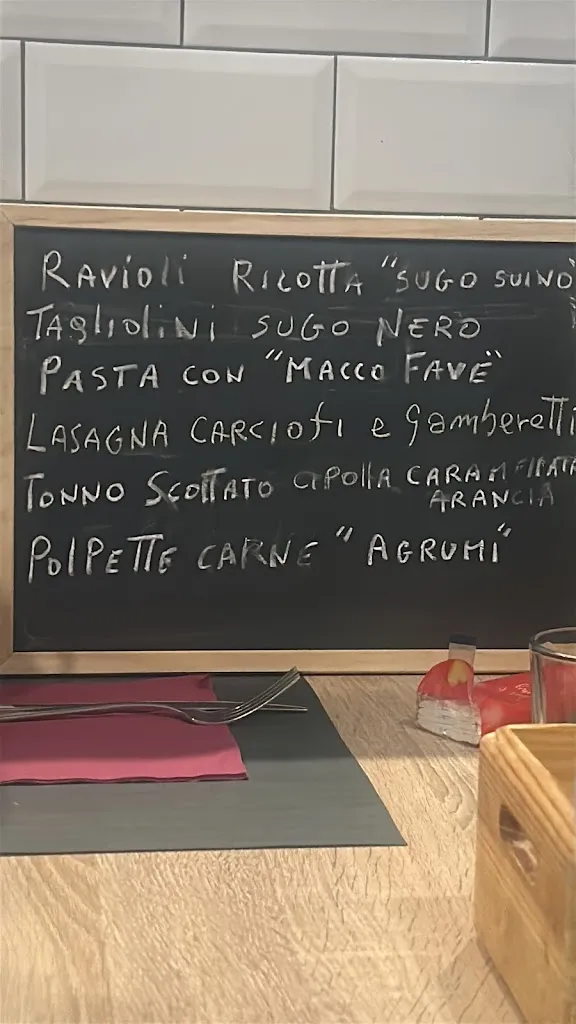 RAVIOLI RICOTTA "SUGO SUINO"
TAGLIOLINI SUGO NERO
PASTA CON "MACCO FAVE"
LASAGNA CARCIOFI e gamberetti
TONNO SCOTTATO CIPOLLA CARAMELLATA
ARANCIA
POLPETTE CARNE "AGRUMI"